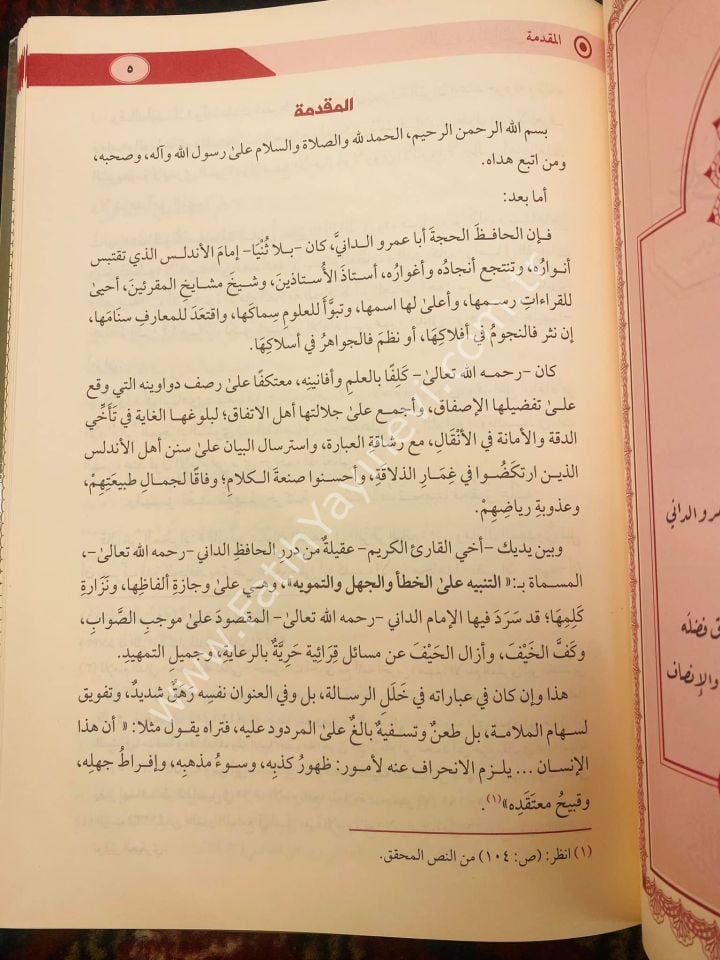 المقدمة
٥
المقدمة
بسم الله الرحمن الرحيم، الحمد لله والصلاة والسلام علىٰ رسول الله وآله، وصحبه،
ومن اتبع هداه.
أما بعد:
فإن الحافظَ الحجةَ أبا عمرو الدانيَّ، كان -بلا ثُنْيَا- إمامَ الأندلس الذي تقتبس
أنوارُه، وتنتجع أنجادُه وأغوارُه، أستاذَ الأُستاذينَ، وشيخَ مشايخِ المقرئينَ، أحيىٰ
للقراءاتِ رسمها، وأعلىٰ لها اسمها، وتبوَّأَ للعلومِ سِماكَها، واقتعَدَ للمعارفِ سنَامَها،
إن نثر فالنجومُ في أفلاكِهَا، أو نظمَ فالجواهرُ في أسلاكِهَا.
كان -رحمه الله تعالىٰ- كَلِفًا بالعلمِ وأفانينِه، معتكفًا علىٰ رصف دواوينه التي وقع
علىٰ تفضيلها الإصفاق، وأجمع علىٰ جلالتها أهل الاتفاق؛ لبلوغها الغاية في تَأَخِّي
الدقة والأمانة في الأنْقَالِ، مع رشاقة العبارة، واسترسال البيان علىٰ سنن أهل الأندلس
الذين ارتكَضُوا في غِمَارِ الذلاقَةِ، وأحسنوا صنعةَ الكلامِ؛ وفاقًا لجمالِ طبيعَتِهِمْ،
وعذوبةِ رياضِهِمْ.
وبين يديك -أخي القارئ الكريم- عقيلةٌ من دررِ الحافظِ الداني -رحمه الله تعالىٰ-،
المسماة بـ: « التنبيه علىٰ الخطأ والجهل والتمويه»، وهي علىٰ وجازةِ ألفاظِها، ونَزَارةِ
كَلِمِهَا؛ قد سَرَدَ فيها الإمام الداني -رحمه الله تعالىٰ- المقصودَ علىٰ موجبِ الصَّوابِ،
وكَفَّ الحَيْفَ، وأزال الحَيْفَ عن مسائل قِرَائِية حَرِيَّةٌ بالرعايةِ، وجميلِ التمهيدِ.
هذا وإن كان في عباراته في خَلَلِ الرسالة، بل وفي العنوان نفسِه رَهَقٌ شديدٌ، وتفويق
لسهام الملامة، بل طعنٌ وتسفيهٌ بالغٌ علىٰ المردود عليه، فتراه يقول مثلا: « أن هذا
الإنسان ... يلزم الانحراف عنه لأمور: ظهورُ كذبِه، وسوءُ مذهبِه، وإفراطُ جهلِه،
وقبيحُ معتقَدِه»(١).
(١) انظر: (ص: ١٠٤) من النص المحقق.
مرو الداني
ق فضلَه
والإنصاف
www.FatihYayinevi.com.tr